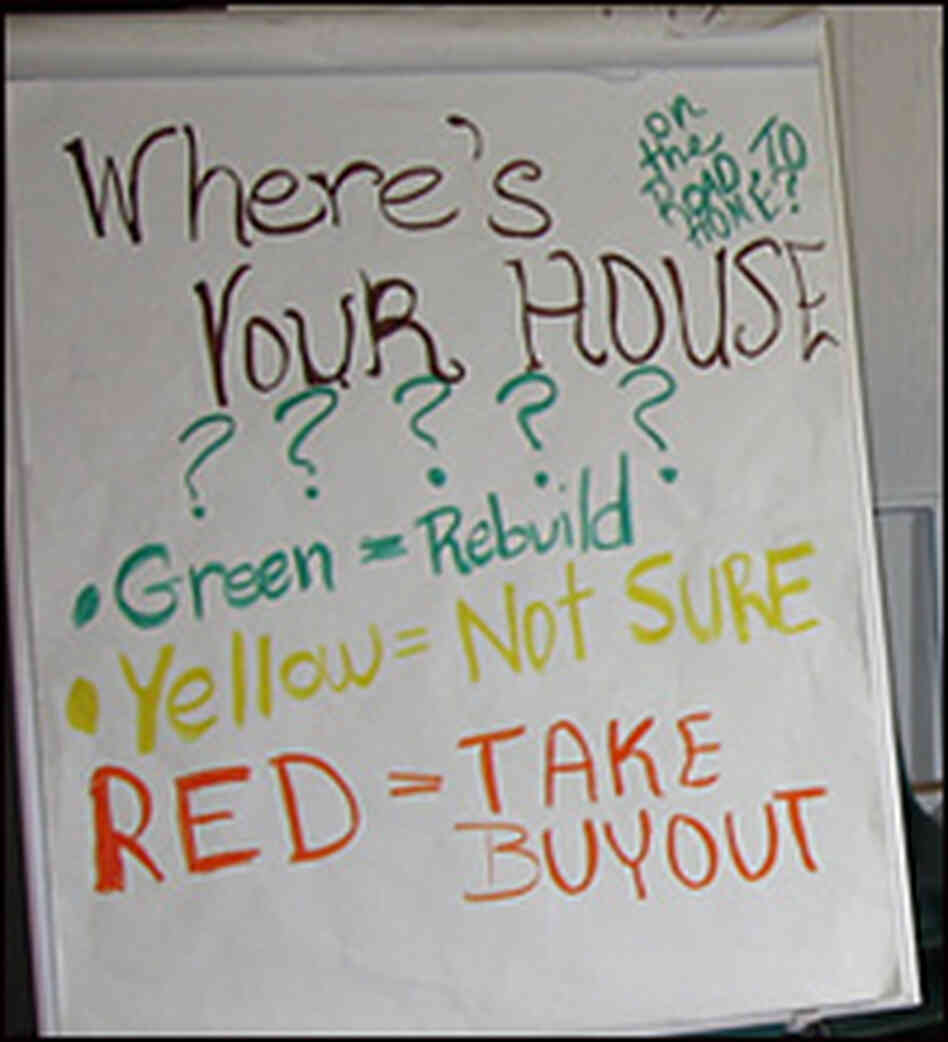 Where's
on
the
ROAD TO
HOME?
YOUR HOUSE
? ? ? ? ?
• Green = Rebuild
• Yellow = Not SURE
RED = TAKE
BUYOUT